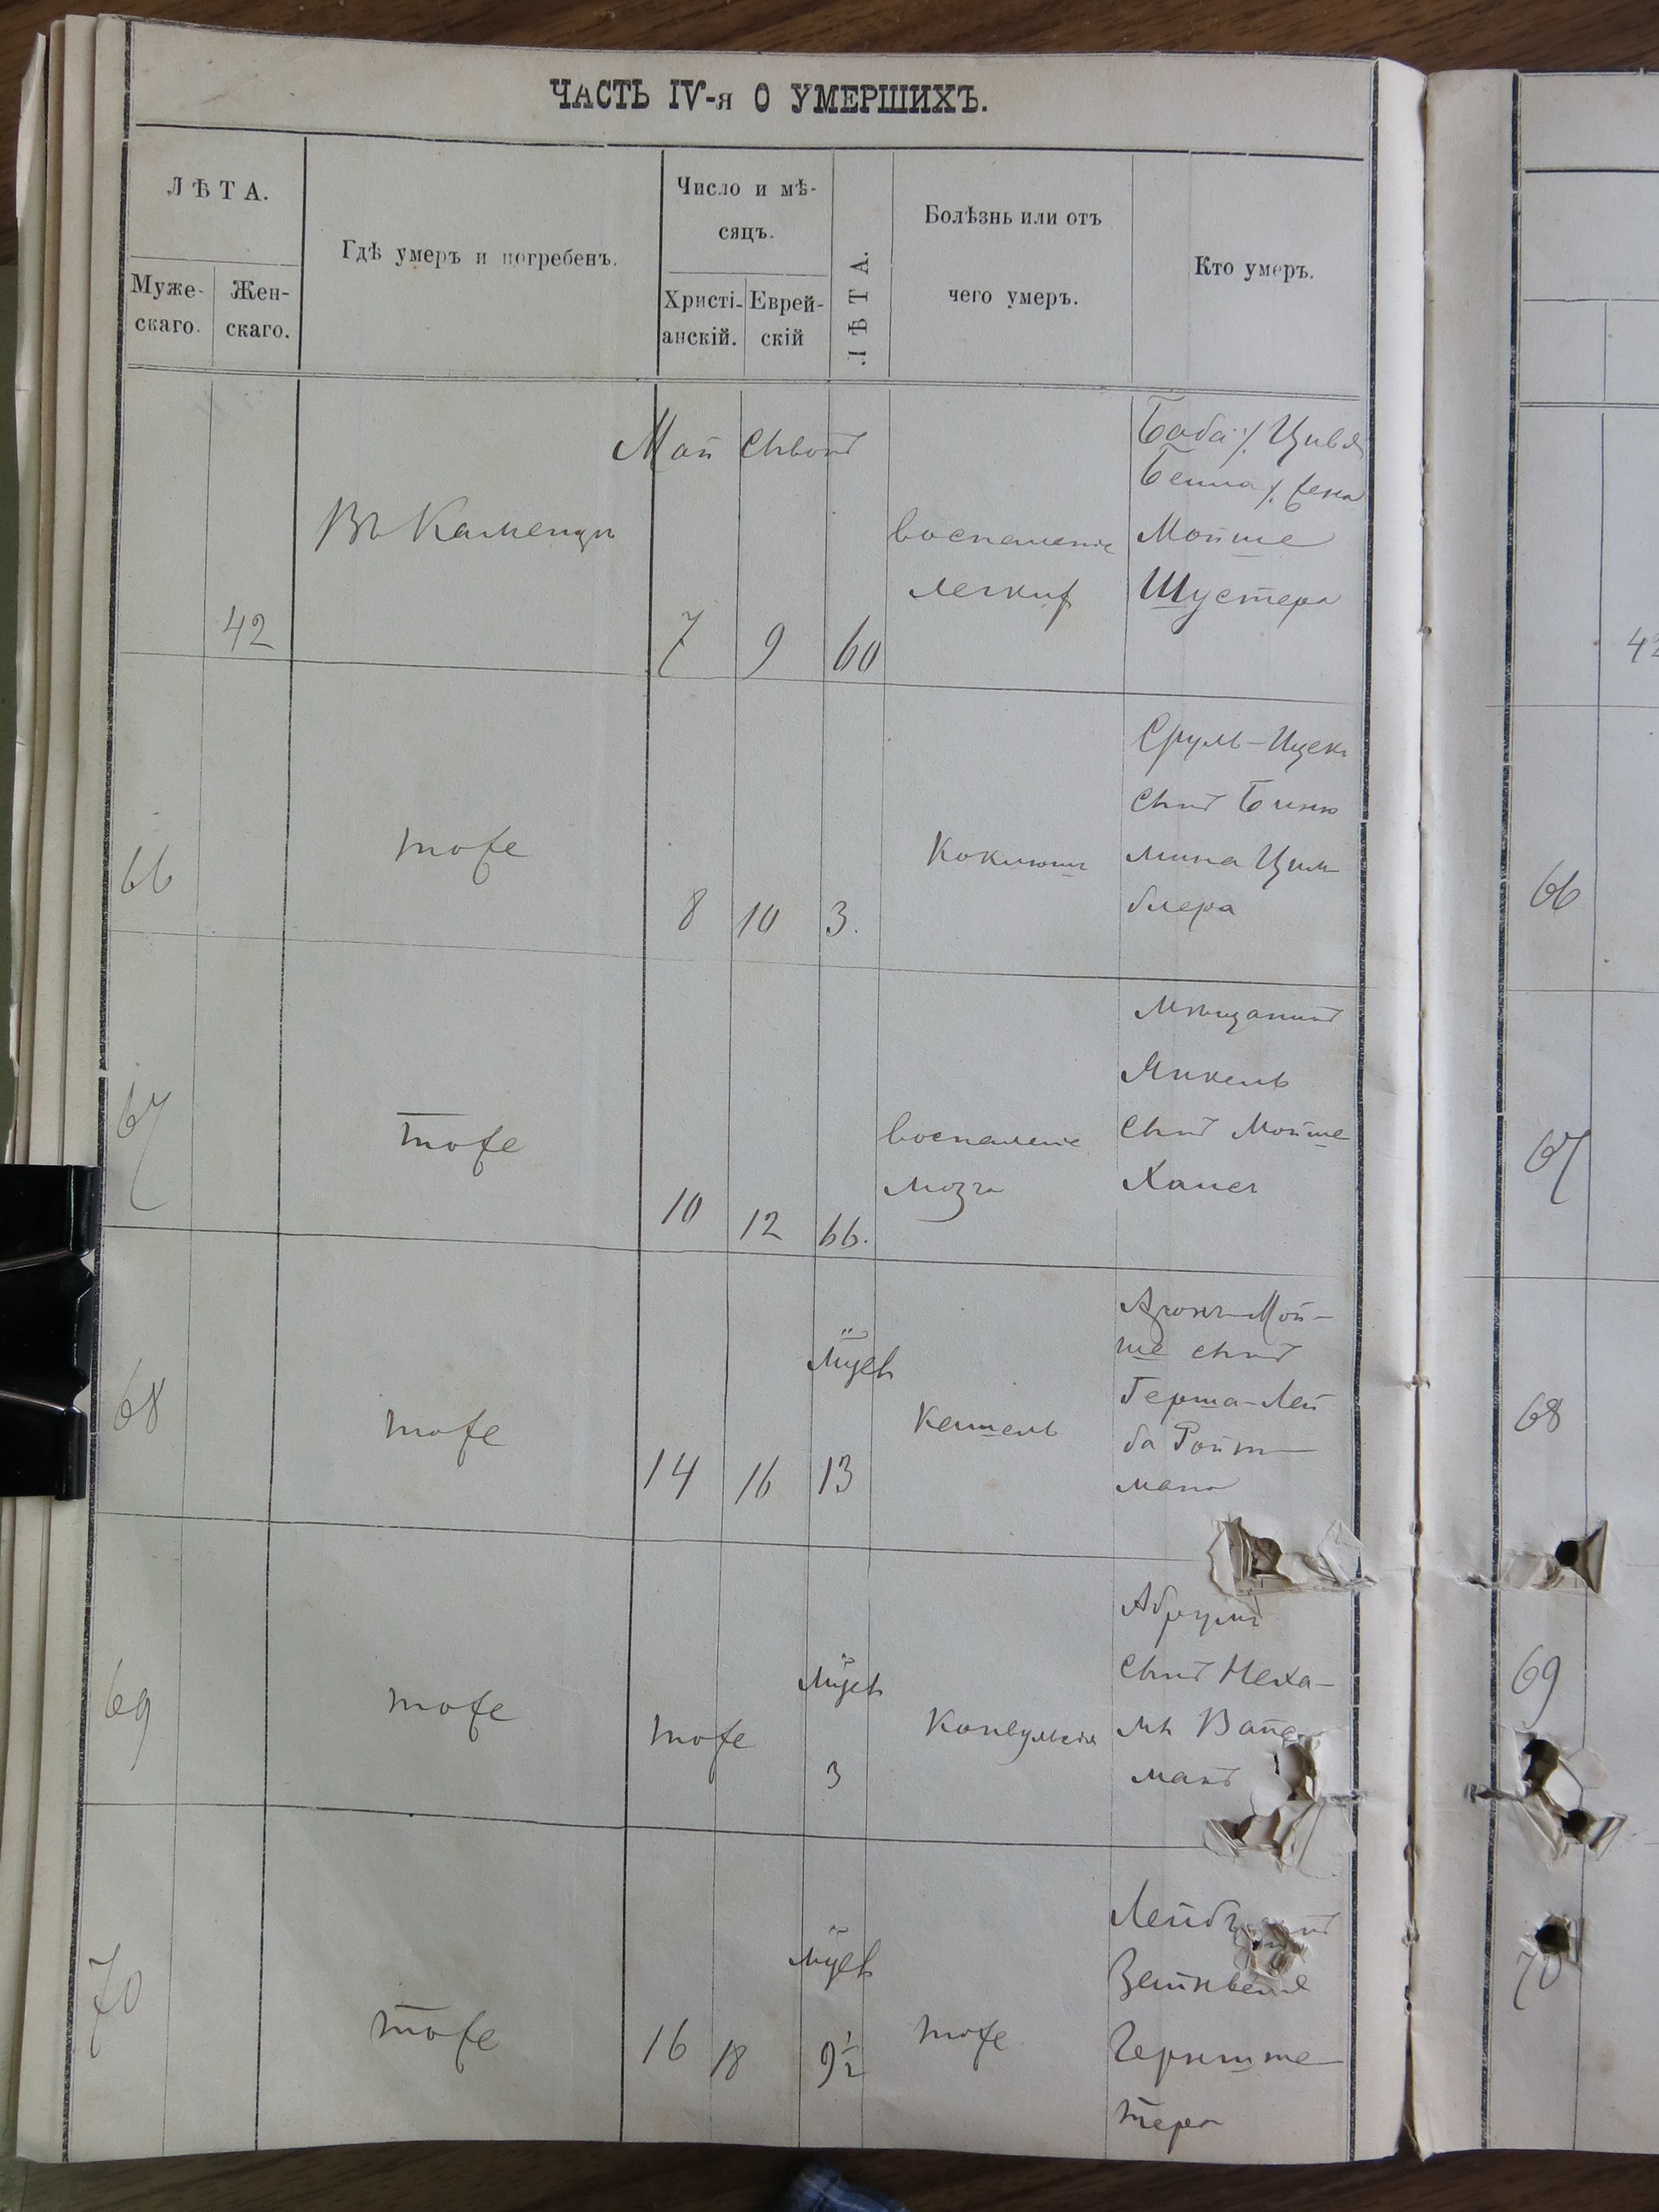 ЧАСТЬ IV-я О УМЕРШИХЪ.
ЛѢТА.
Муже-
скаго.
Жен-
скаго.
Гдѣ умеръ и погребенъ.
Число и мѣ-
сяцъ.
Христі-
анскій.
Еврей-
скій
ЛѢТА.
Болѣзнь или отъ
чего умеръ.
Кто умеръ.
Май
42
Въ Каменцѣ
7
9
60
воспаленіе
легких
Баба Цивья
Бейла жена
Мойше
Шустера
66
тоже
8
10
3.
Коклюшъ
Срулъ-Ицекъ
сынъ Биню
мина Цим
блера
67
тоже
10
12
66.
воспаленіе
мозга
Мѣщанинъ
Янкель
сынъ Мойше
68
тоже
14
16
Мцев
13
Кашель
Аронъ-Мой-
ше сынъ
Герша-Лей
ба Ройт-
мана
69
тоже
тоже
Мцев
3
Конвульсія
Абрумъ
сынъ Неха-
мѣ
манъ
70
тоже
16
18
Мцев
9½
тоже
Лейбъ
Зейнвеля
тера
42
66
67
68
69
70